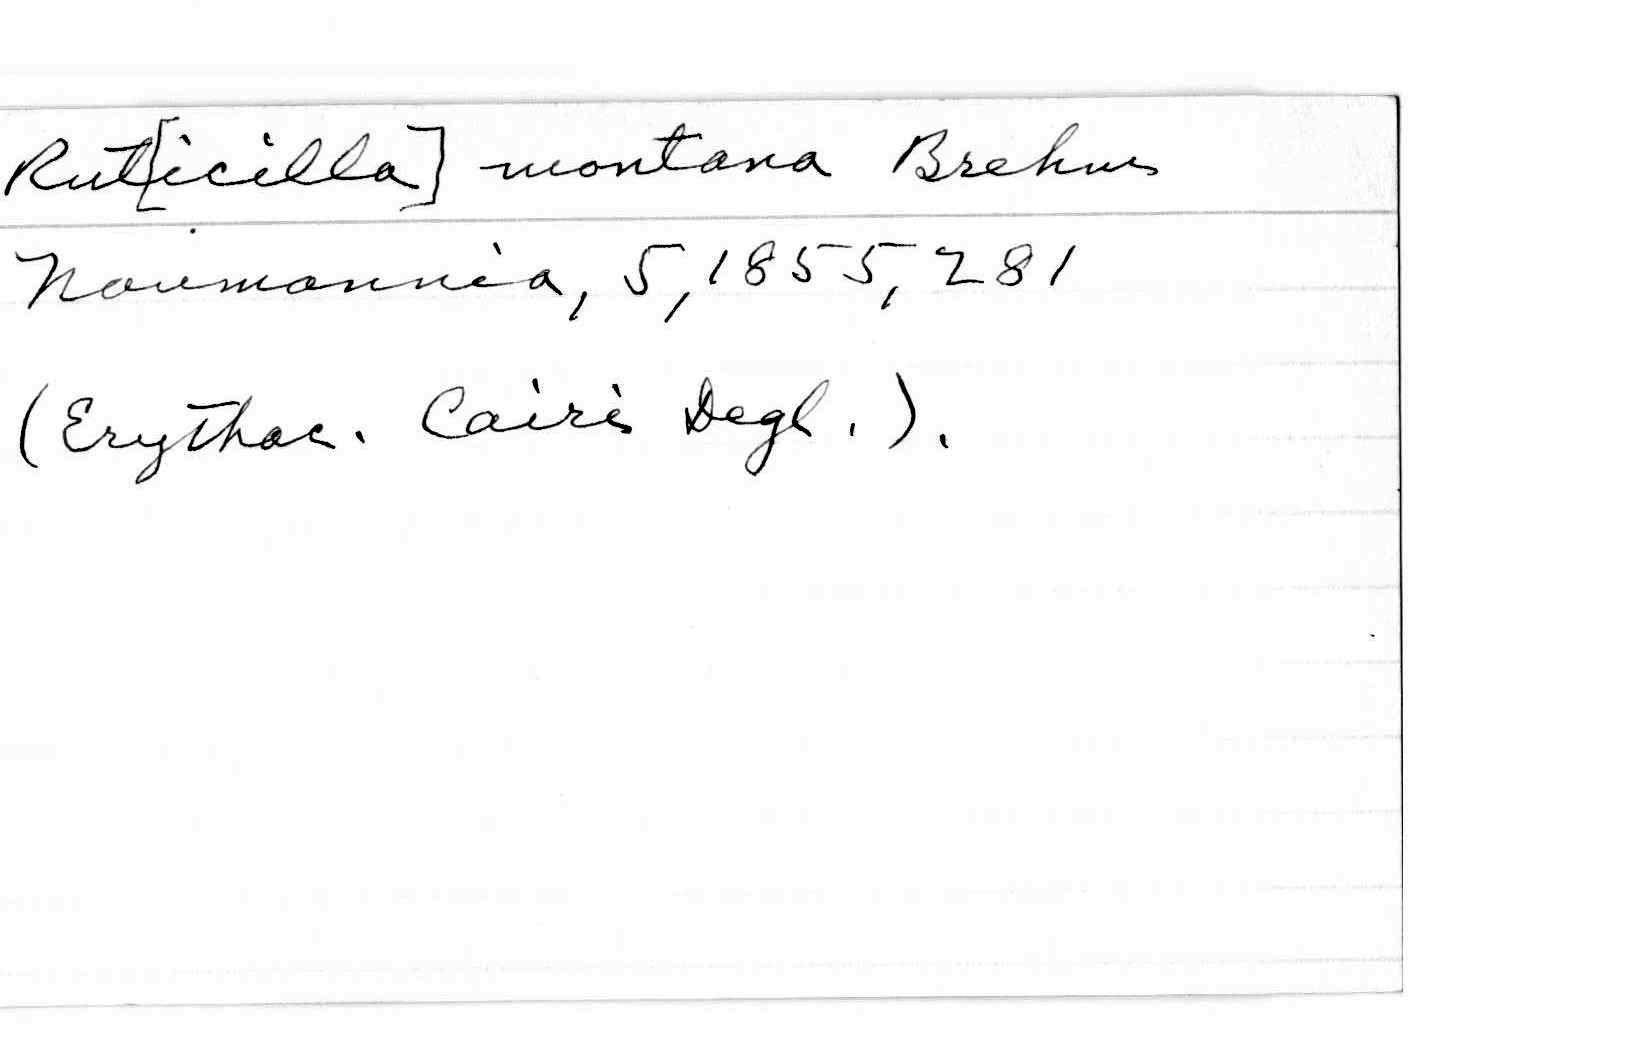 Rut[icilla] montana Brehm
Naumannia, 5, 1855, 281
(Erythac. Cairii Degl.).